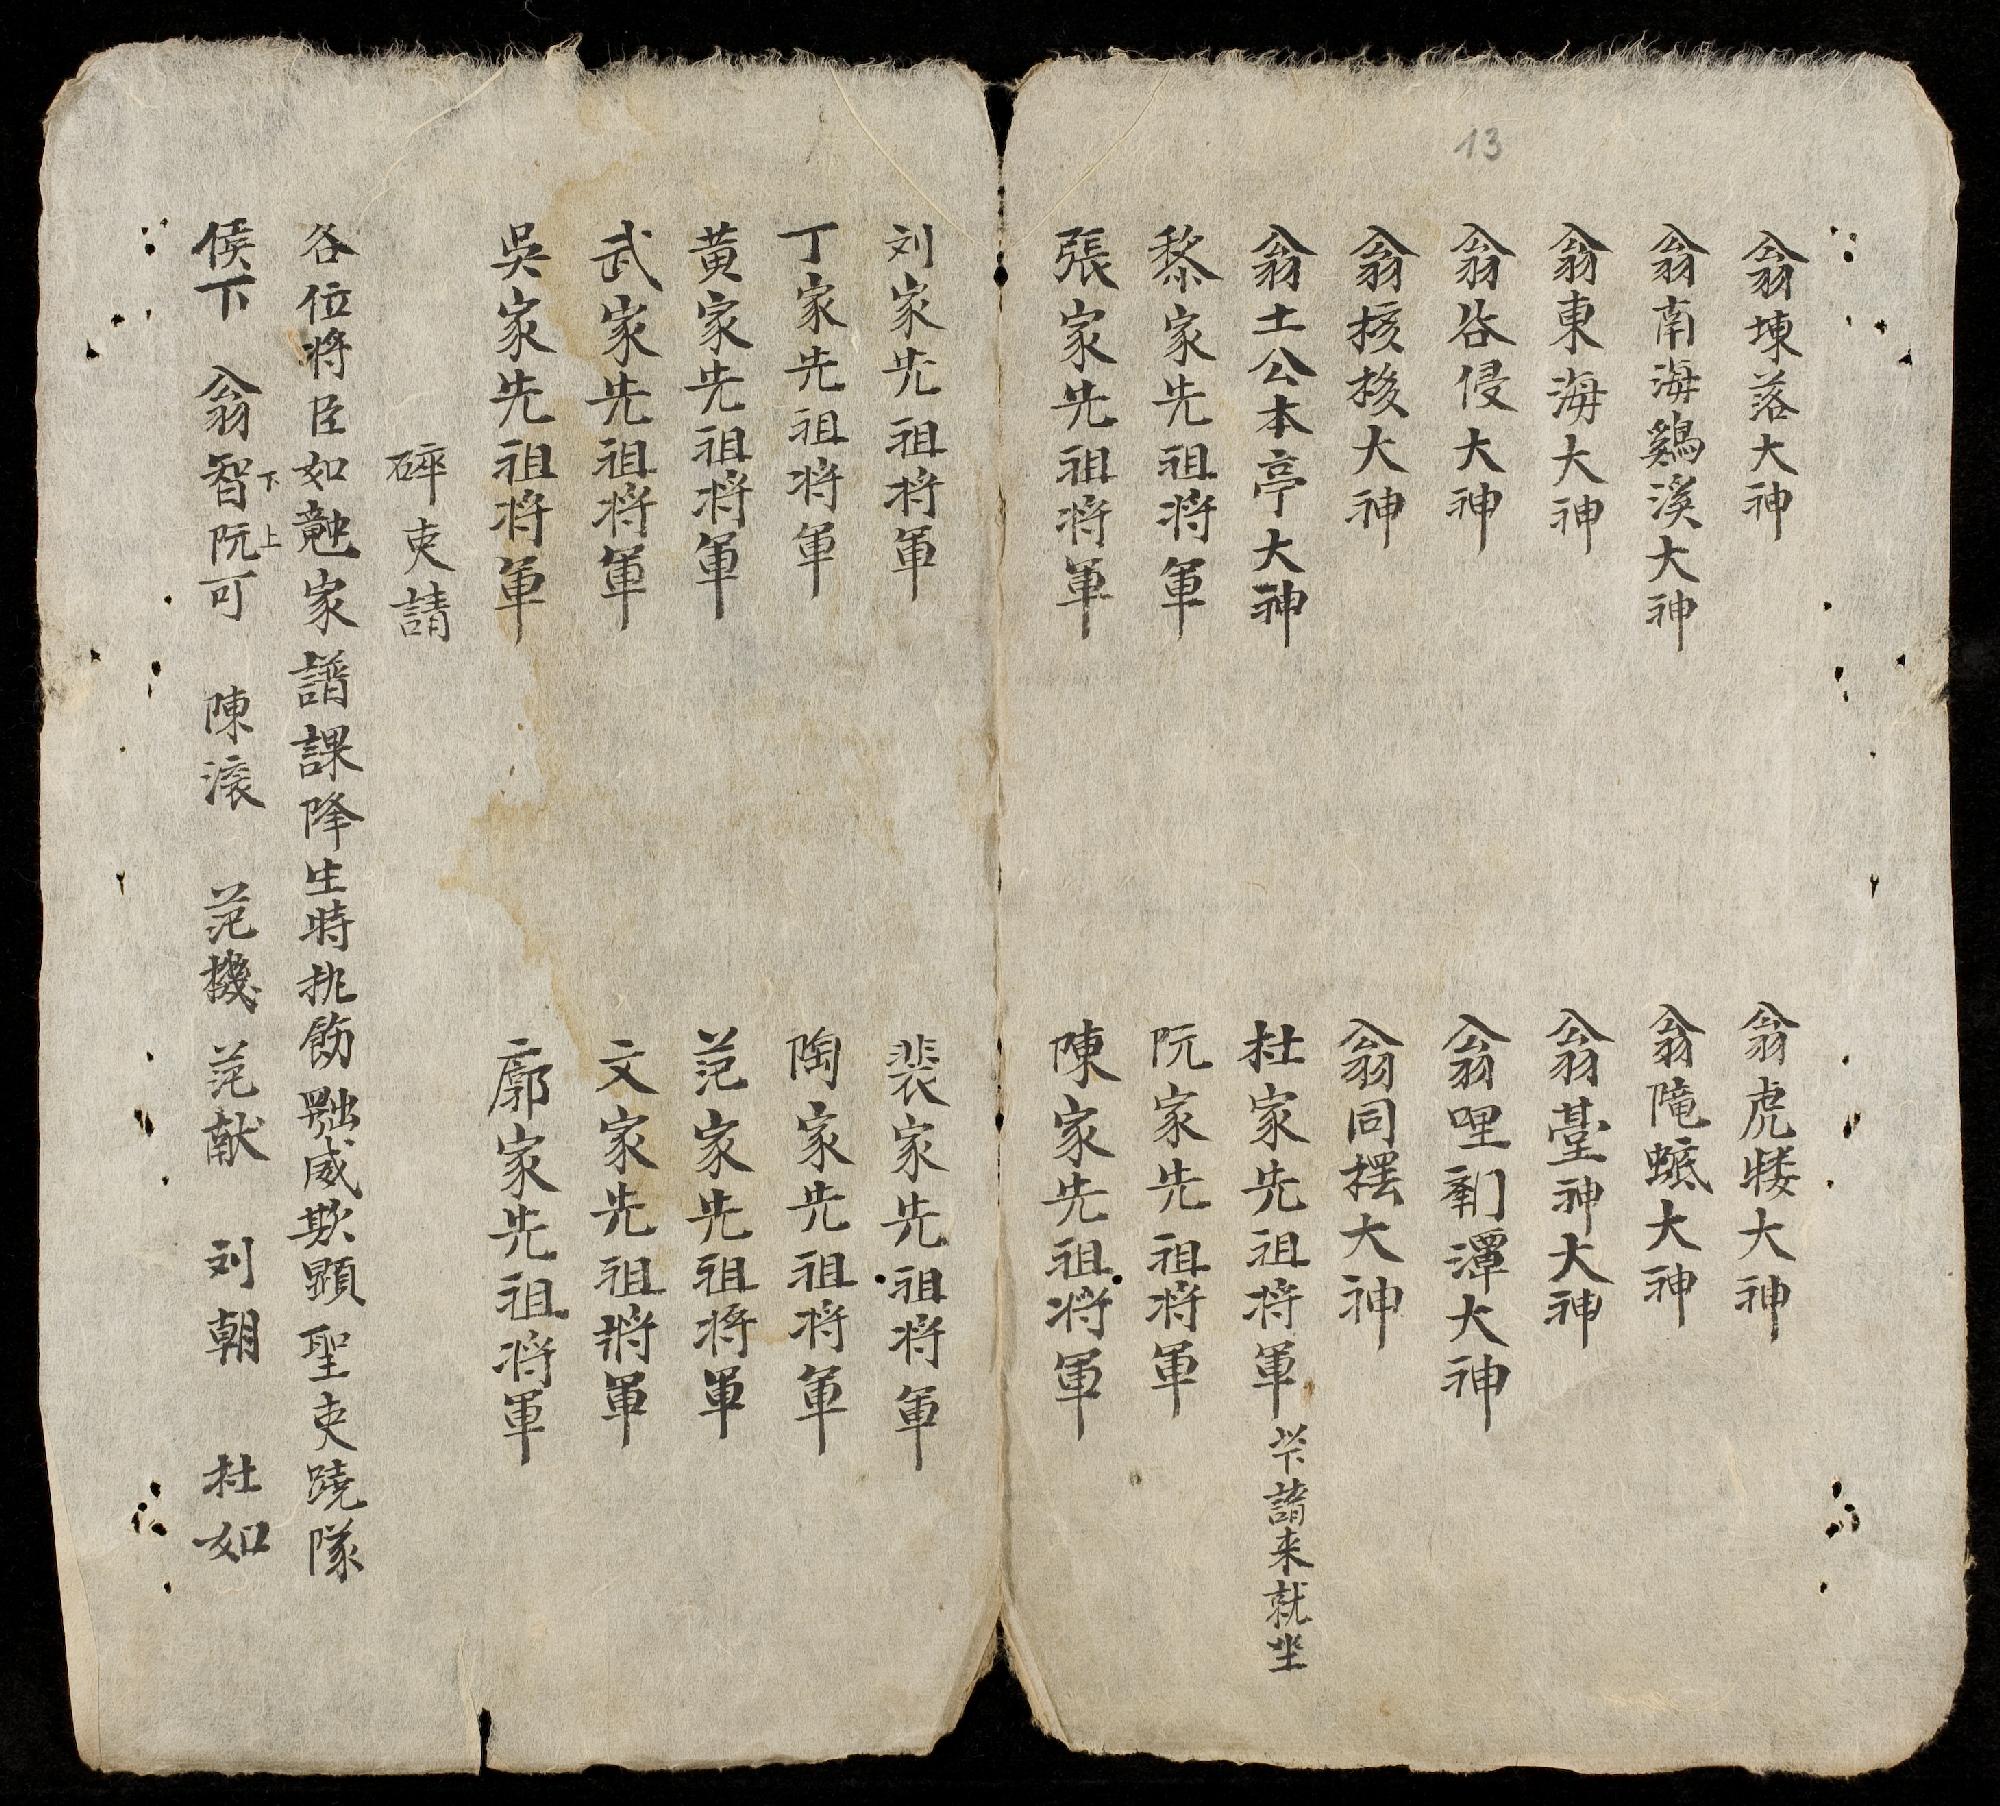 13
翁埬落大神
翁虎㹻大神
翁南海鷄溪大神
翁隆蚳大神
翁東海大神
翁臺神大神
翁谷侵大神
翁哩潭大神
翁核梭大神
翁同摆大神
翁土公本亭大神
杜家先祖将軍 請来就坐
黎家先祖将軍
阮家先祖将軍
張家先祖将軍
陳家先祖将軍
刘家先祖将軍
裴家先祖将軍
丁家先祖将軍
陶家先祖将軍
黄家先祖将軍
范家先祖将軍
武家先祖将軍
文家先祖將軍
吳家先祖将軍
廓家先祖将軍
碎吏請
各位将臣如家譜課降生時挑飭威欺顕聖吏蹺隊
侯下 翁智阮可 陳滚 范機 范献 刘朝 杜如
下上